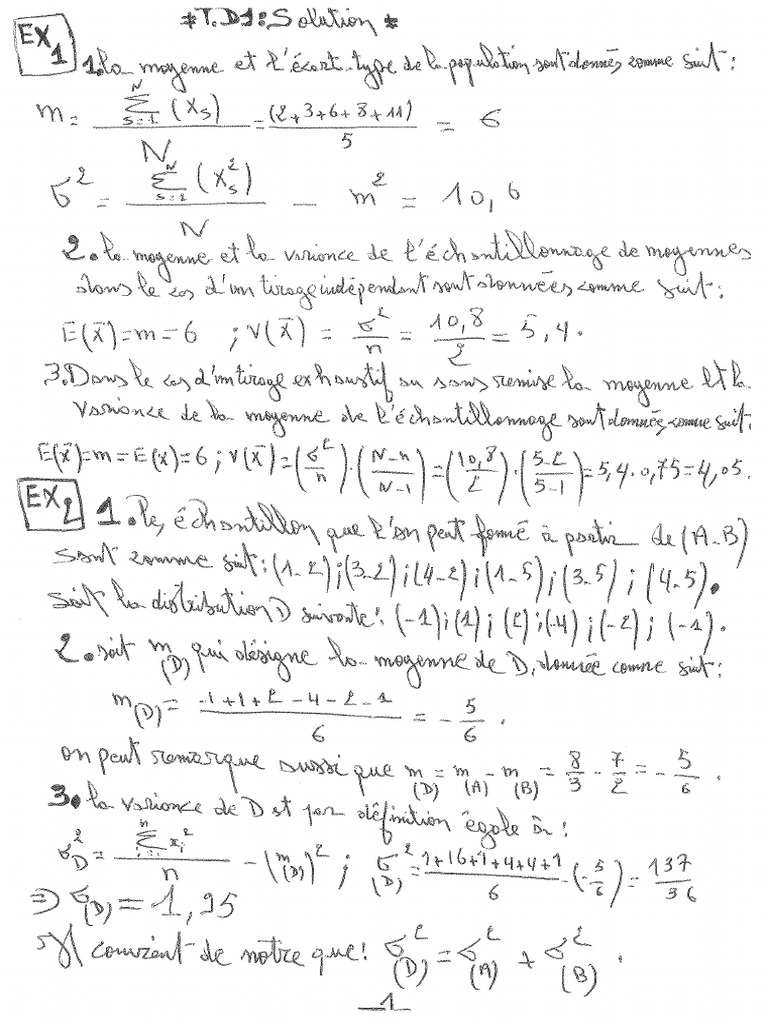 *T.D1: Solution*
EX1
1. la moyenne et l'écart-type de la population sont donnés comme suit:
m = \frac{\sum_{s=1}^{N} (X_s)}{N} = \frac{(2+3+6+8+11)}{5} = 6
σ² = \frac{\sum_{s=1}^{N} (X_s^2)}{N} - m² = 10,6
2. la moyenne et la variance de l'échantillonnage de moyennes
dans le cas d'un tirage indépendant sont données comme suit:
E(X̄)=m=6 ; V(X̄) = \frac{σ²}{n} = \frac{10,8}{2} = 5,4.
3. Dans le cas d'un tirage exhaustif ou sans remise la moyenne et la
variance de la moyenne de l'échantillonnage sont données comme suit:
E(X̄)=m=E(x)=6 ; V(X̄)=(\frac{σ²}{n}).(\frac{N-n}{N-1})=(\frac{10,8}{2}).(\frac{5-2}{5-1})=5,4.0,75=4,05.
EX2
1. le, échantillon que l'on peut formé à partir de (A-B)
sont comme suit: (1-2); (3-2); (4-2); (1-5); (3-5); (4-5).
Soit la distribution D suivante: (-1); (1); (2); (-4); (-2); (-1).
2. soit m(D) qui désigne la moyenne de D, donnée comme suit:
m(D) = \frac{-1+1+2-4-2-1}{6} = -\frac{5}{6}.
on peut remarque aussi que m(D) = m(A) - m(B) = \frac{8}{3} - \frac{7}{2} = -\frac{5}{6}.
3. la variance de D est par définition égale à:
σ_D² = \frac{\sum_{i=1}^{n} x_i^2}{n} - (m(D))² ; σ²(D) = \frac{1+16+1+4+4+1}{6} - (-\frac{5}{6})² = \frac{137}{36}
⇒ σ(D) = 1,95
Il convient de notre que: σ²(D) = σ²(A) + σ²(B).
1